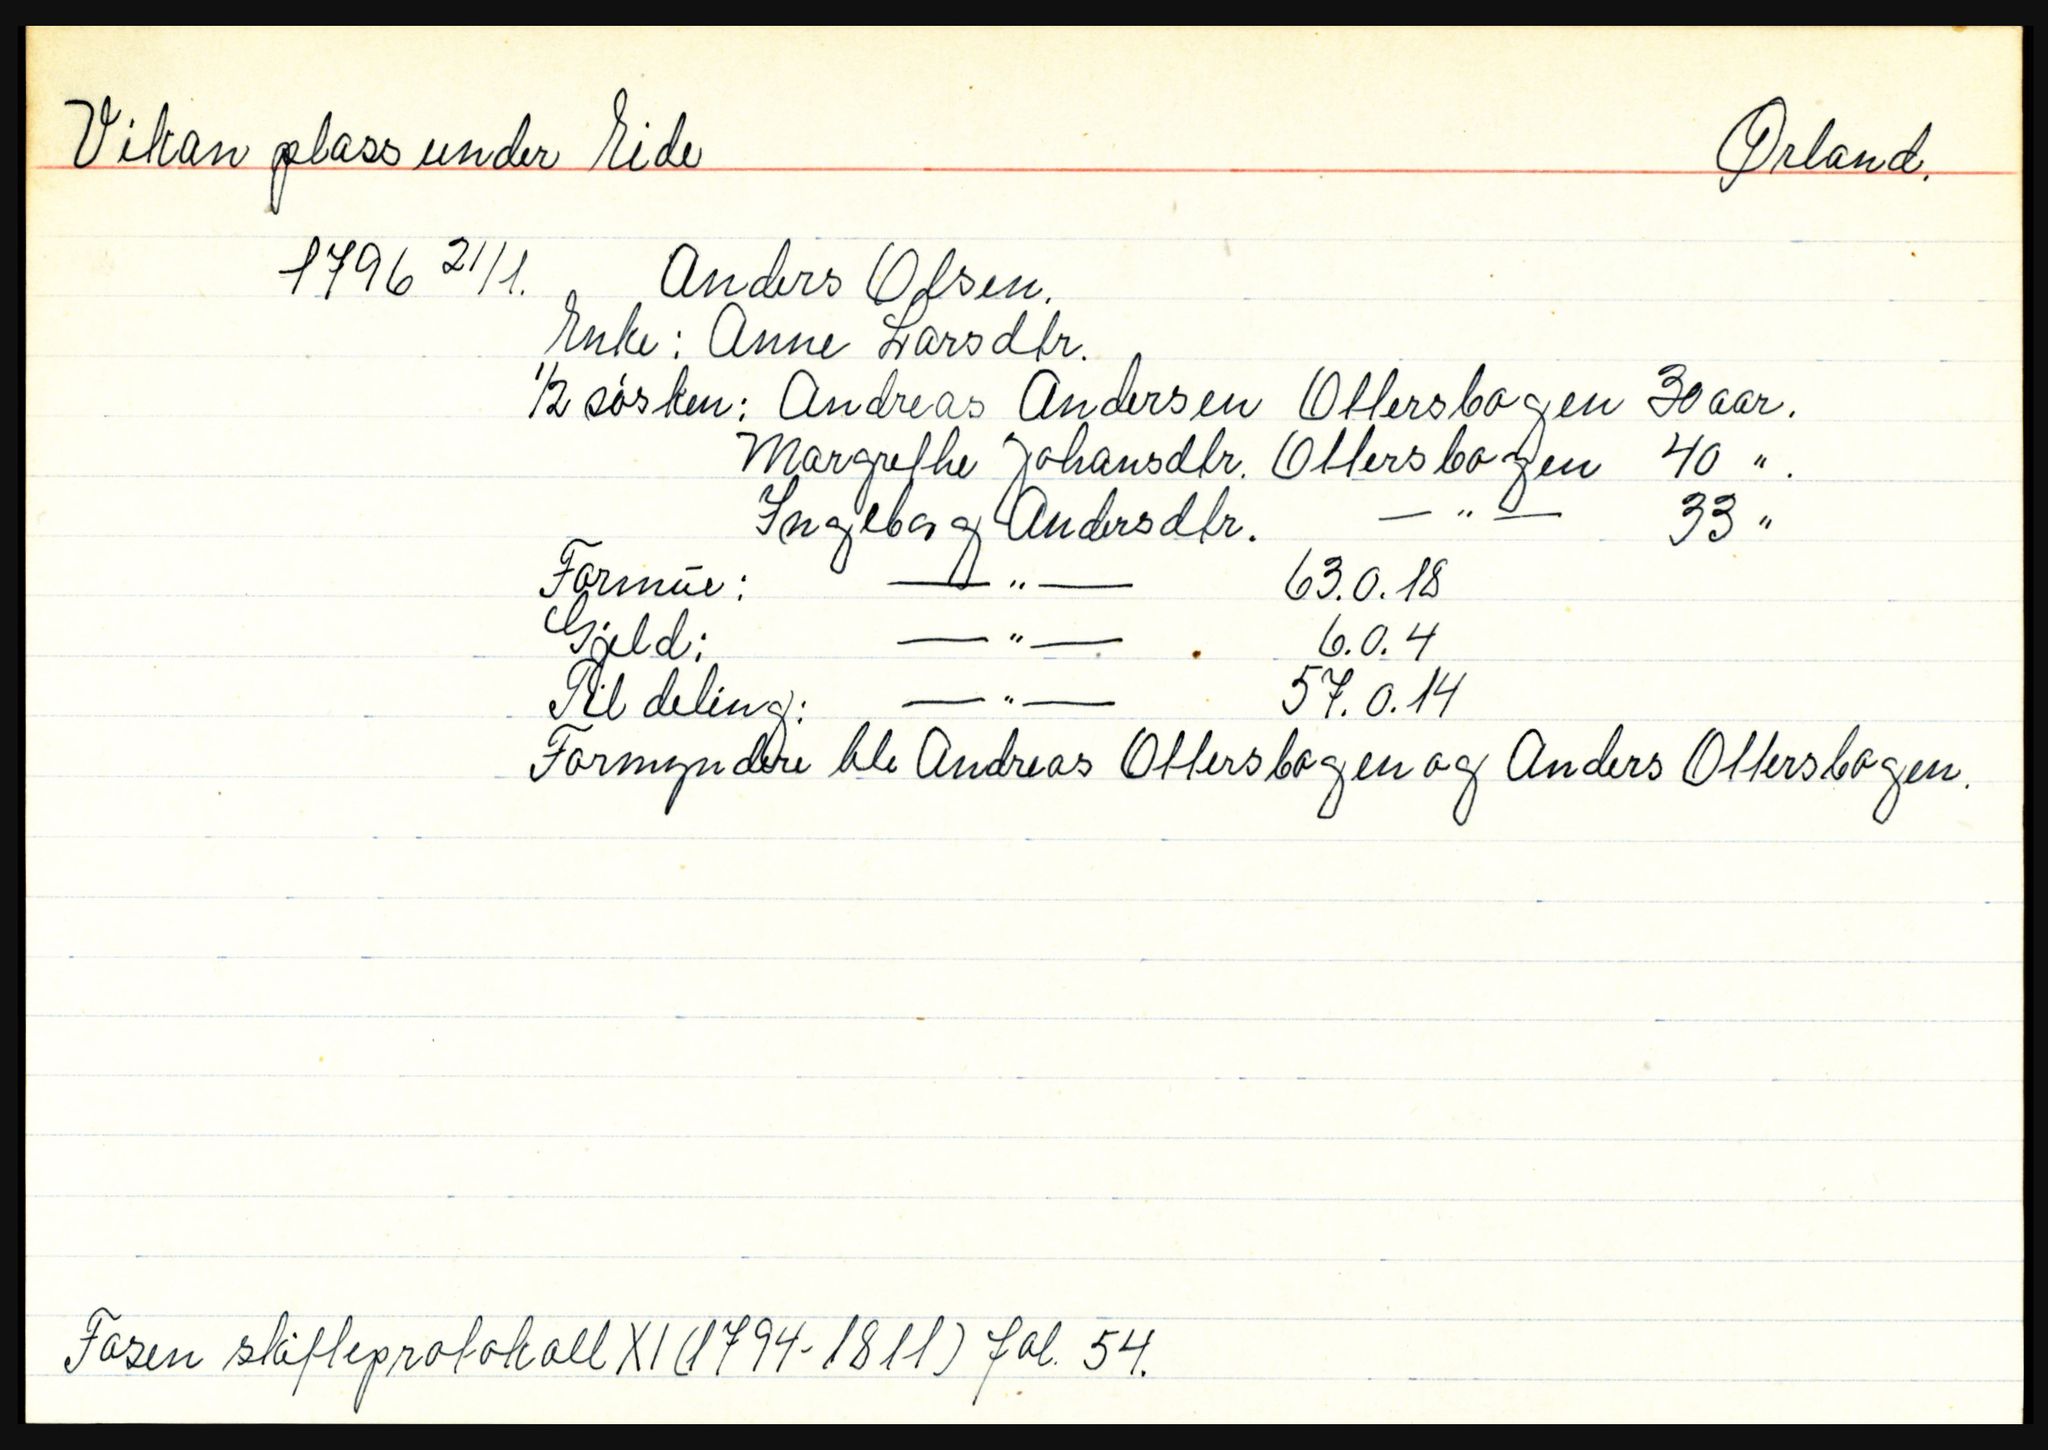 Vikan plass under Eide Ørland.
1796 21/1. Anders Olsen.
Enke: Anne Larsdtr.
1/2 søsken: Andreas Andersen Ottersbogen 30 aar.
Margrethe Johansdtr. Ottersbogen 40 " .
Ingeborg Andersdtr. — " — 33 "
Formue: — " — 63.0.18
Gjeld: — " — 6.0.4
Til deling: — " — 57.0.14
Formyndere ble Andreas Ottersbogen og Anders Ottersbogen.
Fosen skifteprotokoll XI (1794-1811) fol. 54.